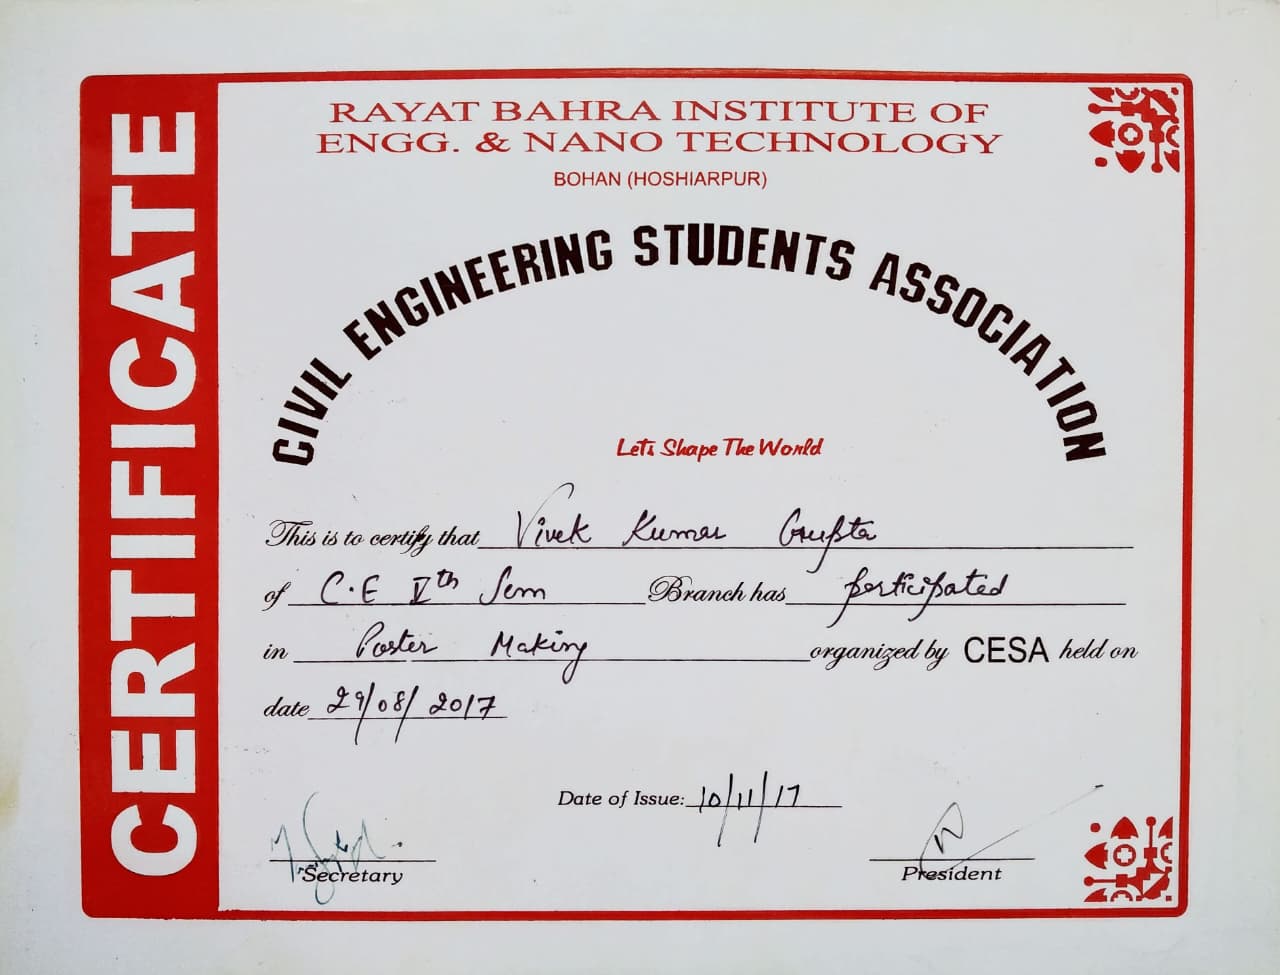 CERTIFICATE
RAYAT BAHRA INSTITUTE OF
ENGG. & NANO TECHNOLOGY
BOHAN (HOSHIARPUR)
CIVIL ENGINEERING STUDENTS ASSOCIATION
Lets Shape The World
This is to certify that Vivek Kumar Gupta
of C.E Vth Sem Branch has participated
in Poster Making organized by CESA held on
date 29/08/2017
Date of Issue: 10/11/17
Secretary President